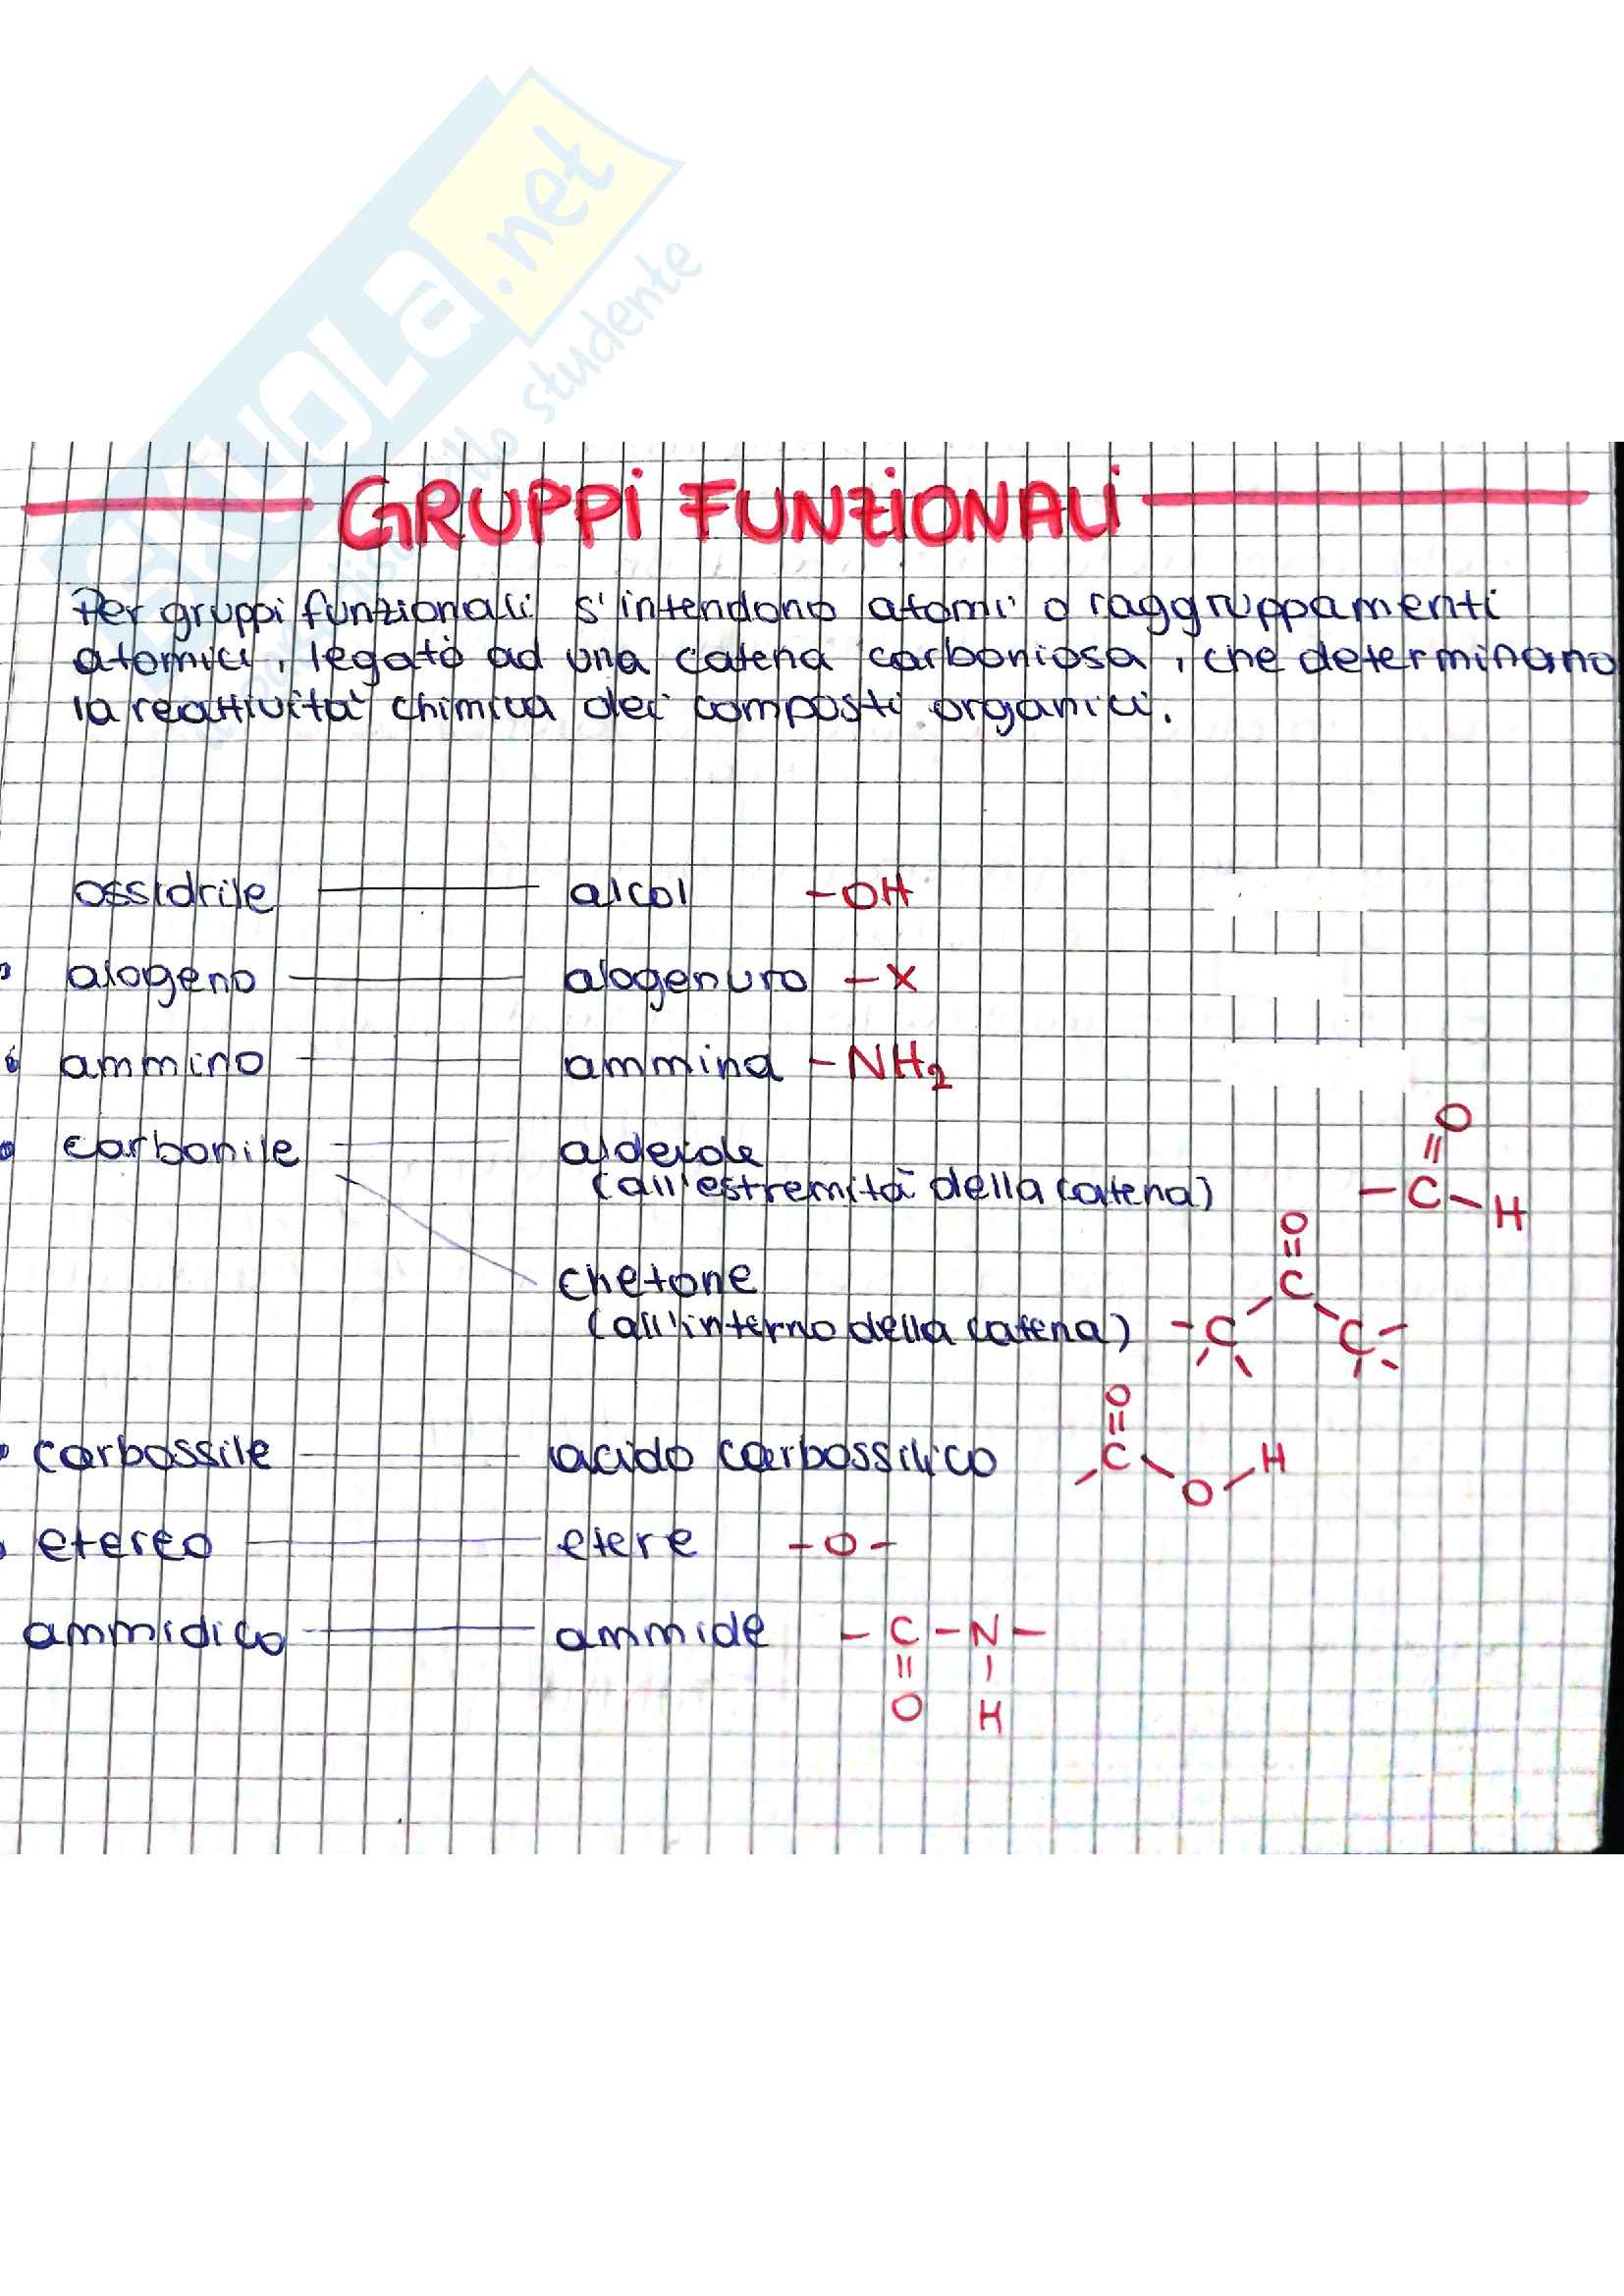 SKUOLA.net
GRUPPI FUNZIONALI
Per gruppi funzionali s'intendono atomi o raggruppamenti
atomici, legato ad una catena carboniosa, che determinano
la reattività chimica dei composti organici.
ossidrile alcol -OH
alogeno alogenuro -X
ammino ammina -NH2
carbonile aldeide
(all'estremità della catena)
O
=
-C-H
chetone
(all'interno della catena)
O
=
C
-C C-
carbossile acido carbossilico
O
=
C
O-H
etereo etere -O-
ammidico ammide -C-N-
= |
O H